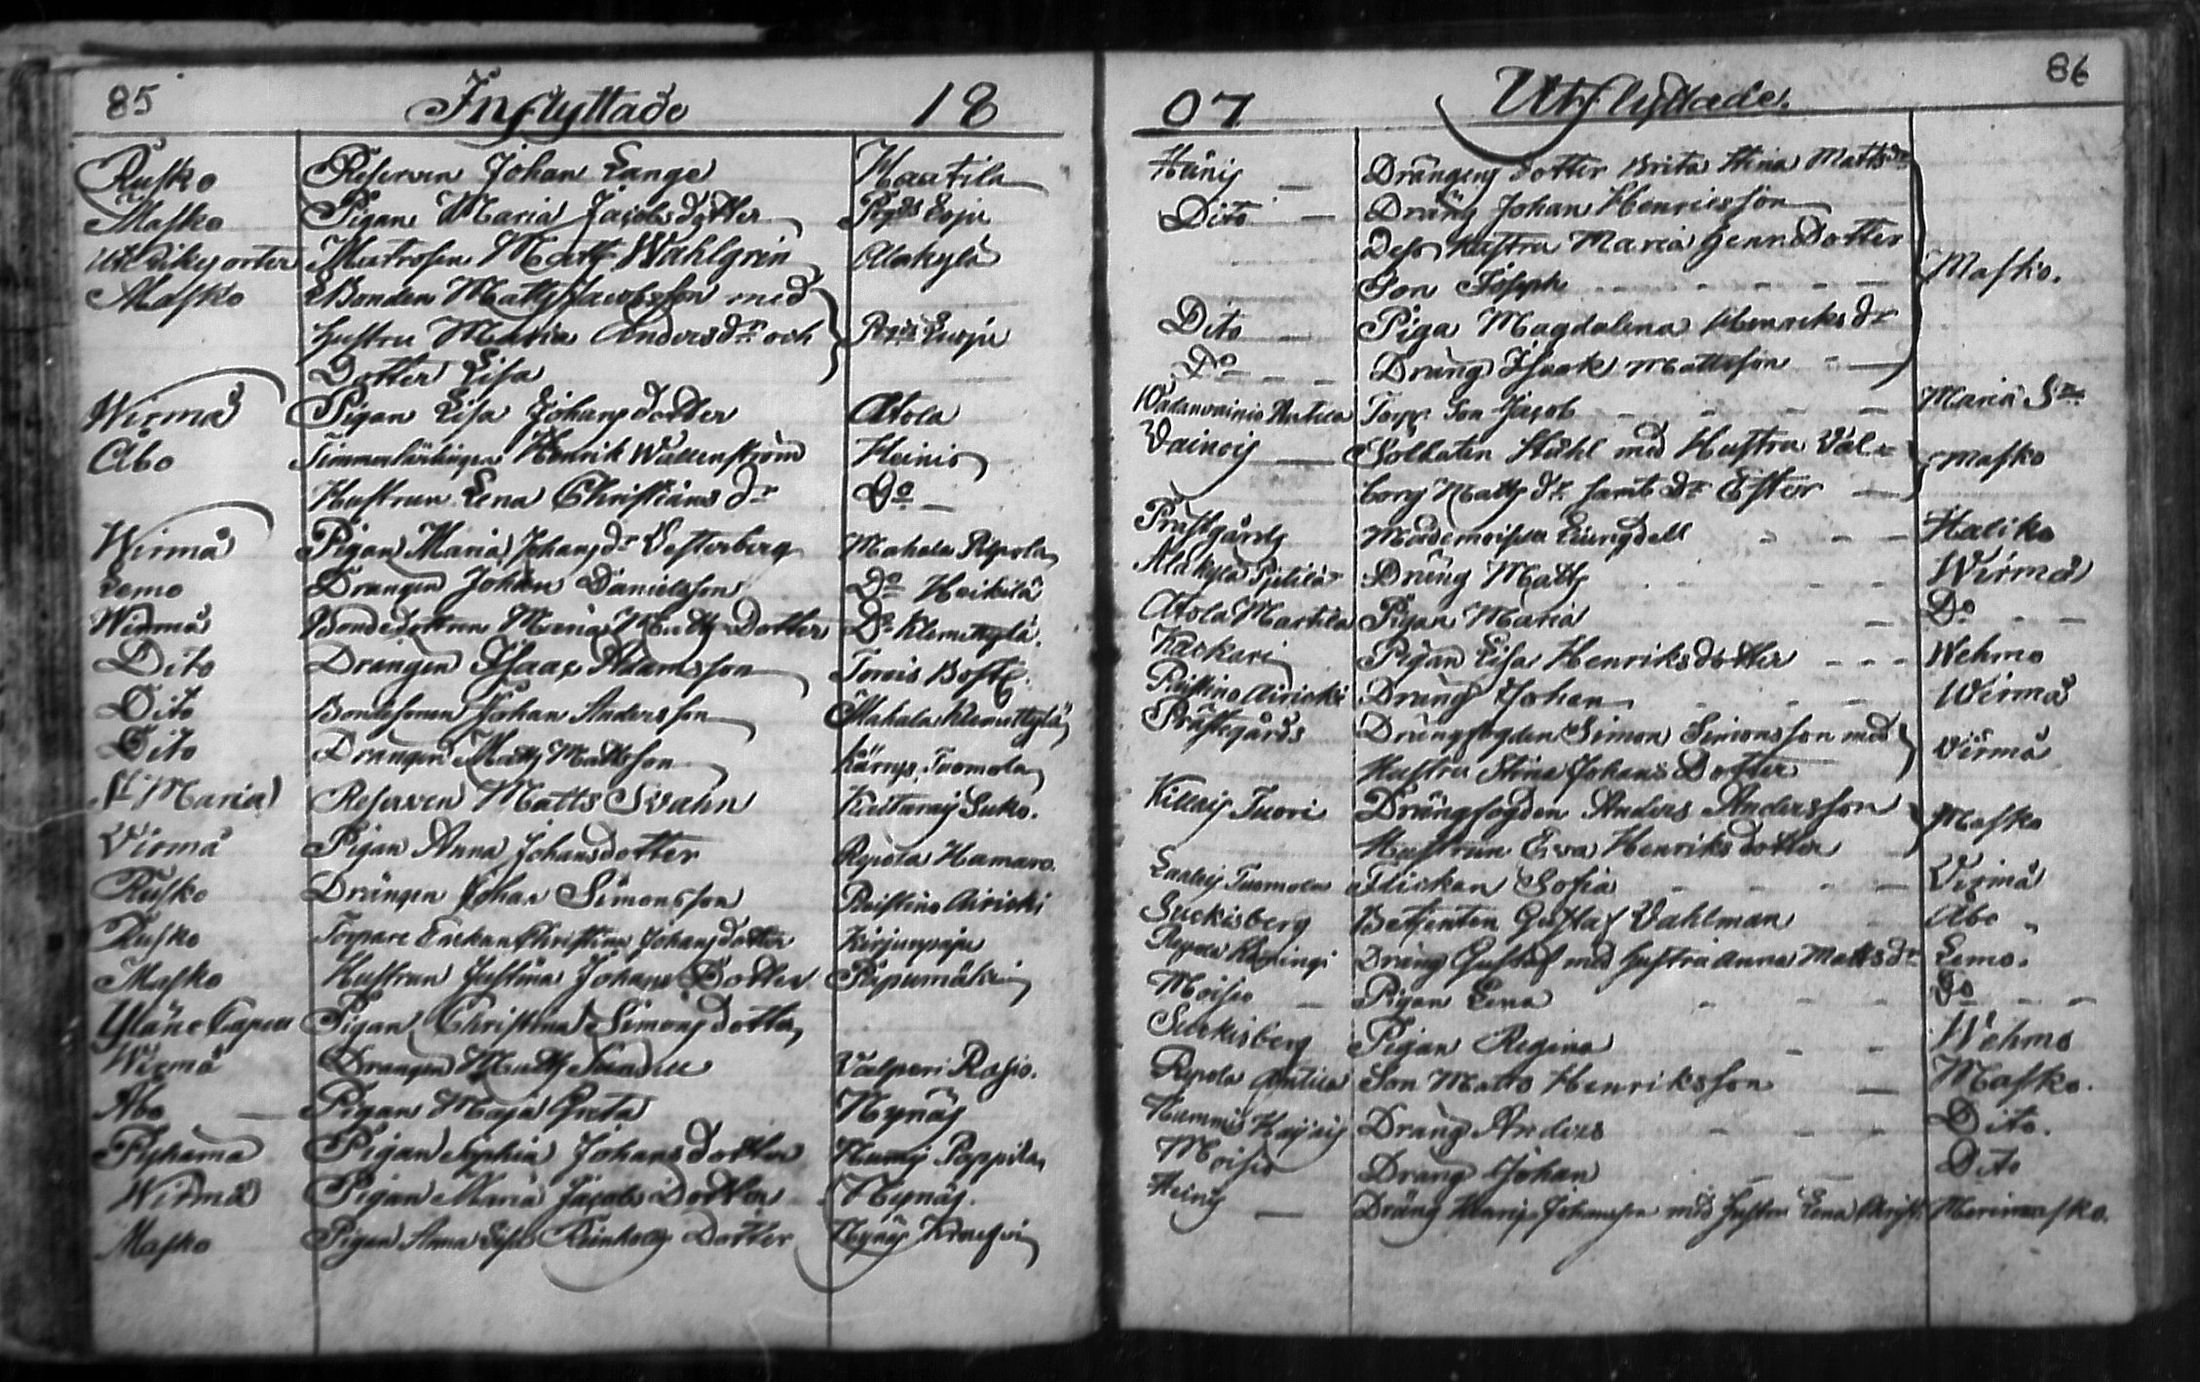 85 Inflyttade 18
Rusko Reserven Johan Lange Haatila
Masko Pigan Maria Jacobsdotter
Utrikes orter Matrosen Matts Wahlgren Alakylä
Masko Bonden Matts Jacobsson med
hustru Maria Andersdr och
Dotter Lisa
Wirmå Pigan Lisa Johansdotter Atola
Åbo Henrik Wallenström Heinis
Hustrun Lena Christiansdr Do
Wirmå Pigan Maria Johansdr Vesterberg Mahala Repola
Lemo Drängen Johan Danielsson Do Heikilä
Wirmå Bondedottren Maria Matts Dotter Do Klemettylä
Dito Drängen Isaac Adamsson Torois Bost.
Dito Bondesonen Johan Andersson Mahala Klemettylä
Dito Drängen Matts Mattsson Kärnys Tuomola
St Maria Reserven Matts Svahn Suko.
Virmå Pigan Anna Johansdotter Repola Hamaro.
Rusko Drängen Johan Simonsson Paistino Airicki
Rusko Torpare Enckan Christina Johansdotter
Masko Hustrun Justina Johans Dotter
Yläne Capell Pigan Christina Simonsdotter
Wirmå Drängen Matts Valperi Rasio.
Åbo Pigan Maja Greta Nynäs
Pyhämä Pigan Sophia Johansdotter Pappila
Wirmå Pigan Maria Jacobs Dotter Nynäs.
Masko Pigan Anna Lisa Reinholds Dotter Nynäs
07 Utflyttade. 86
Heinis Drängens dotter Brita Stina Mattsdr
Dito Dräng Johan Henricsson
Dess Hustru Maria Henr. Dotter Masko.
Son Joseph
Dito Piga Magdalena Henriksdr
Do Dräng Isaak Mattsson
Antila Torp. Son Jacob Maria St
Vainois Soldaten Ståhl med Hustru Val- Masko
borg Mattsdr samt dr Ester
Prästgårds Mademoiselle Ljungdell Haliko
Alakylä Pjetilä Dräng Matts Wirmå
Atola Martila Pigan Maria Do
Kaskari Pigan Lisa Henriksdotter Wehmo
Paistino Airicki Dräng Johan Wirmå
Prästegårds Drängfogden Simon Simonsson med Virmå
Hustru Stina Johans Dotter
Killais Tuori Drängfogden Anders Andersson Masko
Hustrun Eva Henriksdotter
Tuomola Flickan Sofia Virmå
Suckisberg Betjenten Gustaf Vahlman Åbo
Repola Dräng Gustaf med hustru Anna Mattsdr Lemo.
Moisio Pigan Lena Do
Suckisberg Pigan Regina Wehmo
Repola Antila Son Matts Henriksson Masko.
Dräng Anders Dito.
Moisio Dräng Johan Dito
Heinis Dräng Johansson med hustru Lena Christ. Merimasko.